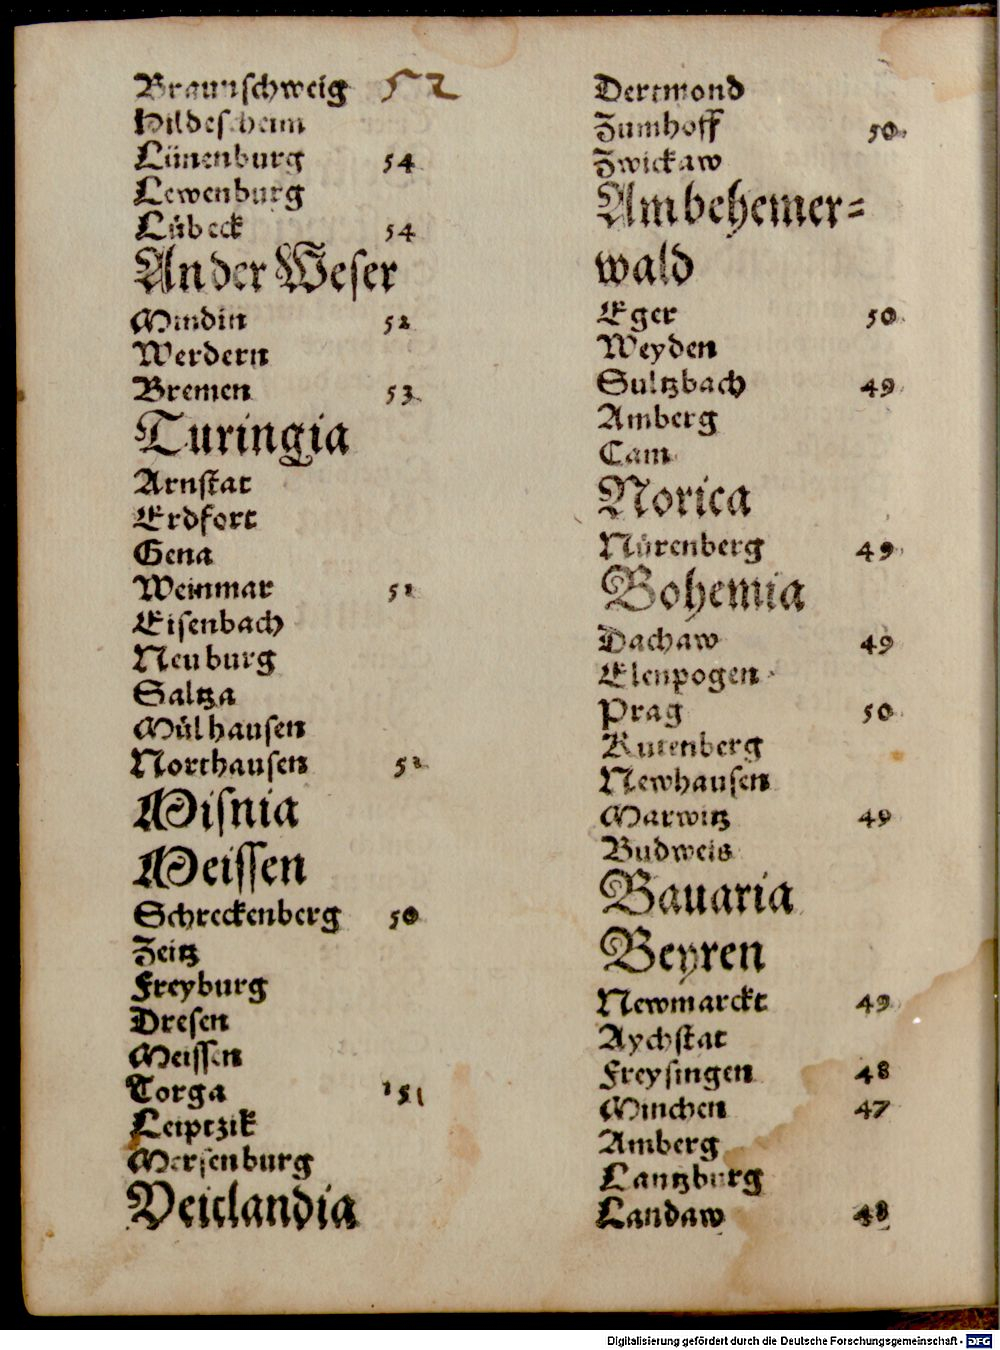 Braunschweig 52
Hildesheim
Lünenburg 54
Lewenburg
Lübeck 54
An der Weser
Mindin 52
Werdern
Bremen 53
Turingia
Arnstat
Erdfort
Gena
Weinmar
Eisenbach
Neuburg
Saltza
Mülhausen
Northausen
Misnia
Meissen
Schreckenberg 50
Zeitz
Freyburg
Dresen
Meissen
Torga 151
Leiptzik
Mersenburg
Veitlandia
Dertmond
Zumhoff 50
Zwickaw
Am behemer=
wald
Eger 50
Weyden
Sultzbach 49
Amberg
Cam
Norica
Nürenberg 49
Bohemia
Dachaw 49
Elenpogen
Prag 50
Kutenberg
Newhausen
Marwitz 49
Budweis
Bauaria
Beyren
Newmarckt 49
Aychstat
Freysingen 48
Minchen 47
Amberg
Lantzburg
Landaw 48
Digitalisierung gefördert durch die Deutsche Forschungsgemeinschaft - DFG